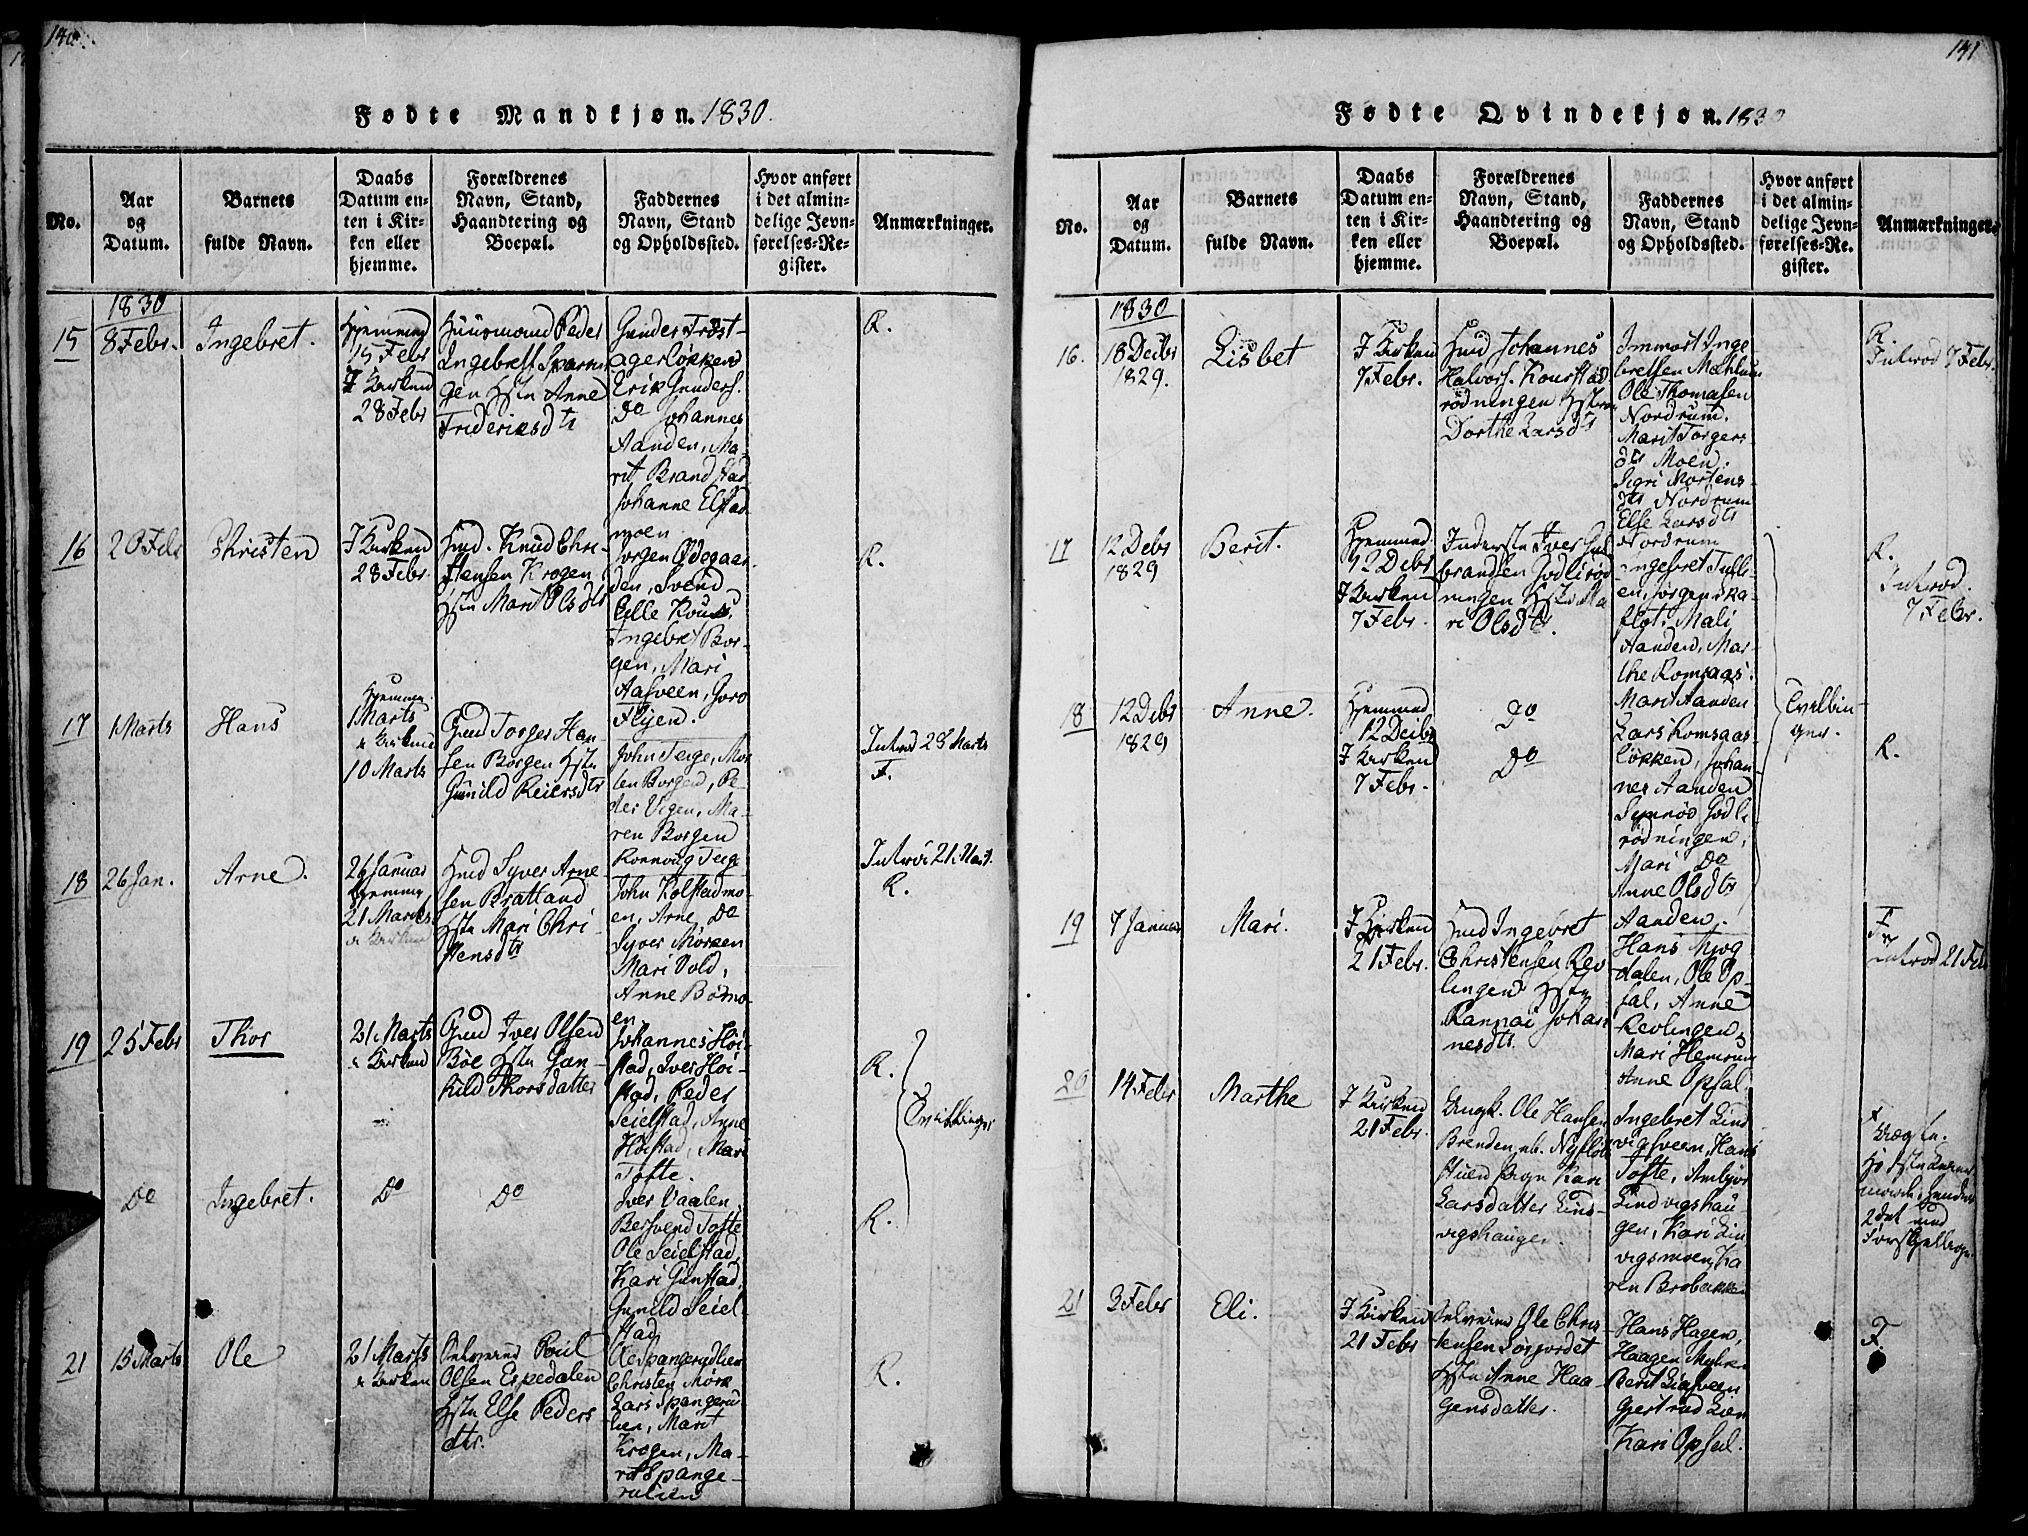 140
Fødte Mandkjøn. 1830.
No.
Aar
og
Datum.
Barnets
fulde Navn.
Daabs
Datum en-
ten i Kir-
ken eller
hjemme.
Forældrenes
Navn, Stand,
Haandtering og
Boepæl.
Faddernes
Navn, Stand
og Opholdssted.
Hvor anført
i det almin-
delige Jevn-
førelses-Re-
gister.
Anmærkninger.
1830
15
8 Febr.
Ingebret.
Hjemmed
15 Febr
I Kirken
28 Febr
Huusmand Peder
gen Hstr Anne
Fridericsdtr
ageløkken
Erik Gunders.
Do Johannes
Aanden, Ma-
rit Brandstad
Johanne Elstad
moen
R.
16
20 Febr
Christen
I Kirken
28 Febr.
Hmd. Knud Chri-
stensen Krogen
Hstr Marit Olsdtr
Jørgen Ødegaar-
den, Svend
Ingebret Bor-
gen, Mari
Aasveen, Goro
Flyen.
R.
17
1 Marts
Hans
Hjemme
1 Marts
i Kirken
10 Marts
Gmd Torger Han-
sen Borgen Hstr
Gunild Reiersdtr
John Teige, Mor
ten Borgen, Pe-
der Vigen, Ma-
ren Borgen
Ronnoug Teige
Introd 28 Marts
F.
18
26 Jan.
Arne.
26 Januar
hjemme
21 Marts
i Kirken
Hmd Syver Arne-
sen Bratland
Hstr Mari Chri-
stensdtr
John Kolstadmo-
en, Arne Do
Syver Mørken
Mari Vold,
Anne Bømo-
en
Introd 21 Mart.
R.
19
25 Febr
Thor
21 Marts
i Kirken
Gmd Iver Olsen
Bøe Hstr Gun-
hild Thorsdatter
Johannes Høi-
stad, Iver Høi-
stad, Peder
Seielstad, Anne
Høistad, Mari
Tofte.
R.
Tvillinger
Do
Ingebret.
Do
Do
Iver Vaalen,
Bersvend Tofte
Ole Seielstad,
Kari Gunstad,
Gunild Seiel-
stad
R.
21
15 Marts
Ole
21 Marts
i Kirken
Selveier Poul
Olsen Espedalen
Hstr Else Peders
dtr.
Ole Spangerudlien
Christen Mork
Lars Spangerud
lien, Marit
Krogen, Ma-
rit Spange-
rulien
R.
141
Fødte Qvindekjøn. 1830
No.
Aar
og
Datum.
Barnets
fulde Navn.
Daabs
Datum en-
ten i Kir-
ken eller
hjemme.
Forældrenes
Navn, Stand,
Haandtering og
Boepæl.
Faddernes
Navn, Stand
og Opholdssted.
Hvor anført
i det almin-
delige Jevn-
førelses-Re-
gister.
Anmærkninger.
1830
16.
18 Decbr
1829.
Lisbet
I Kirken
7 Febr.
Hmd Johannes
Halvors. Kourstad
rødningen Hstr
Dorthe Larsdtr
Immort Inge
bretsen Mæhlum
Ole Thomasen
Nordrum.
Marit Torgers
dtr Moen.
Sigri Mortens-
dtr Nordrum
Else Larsdtr
Nordrum
R.
Introd 7 Febr.
17
12 Debr
1829
Berit.
Hjemmed
12 Debr
I Kirken
7 Febr.
Inderste Iver Gul
brandsen Jodlirød
ningen Hstr Ma
ri Olsdtr.
Ingebret Tulli-
en, Jørgen Ska-
flot, Mali
Aanden, Mar-
the Romsaas.
R.
Introd.
7 Febr.
18
12 Debr
1829
Anne.
Hjemmed
12 Decbr
I Kirken
7 Febr.
Do
Do
Marit Aanden
Lars Romsaas-
løkken, Johan-
nes Aanden
Synnøv Jodli
rødningen,
Mari Do
Anne Olsdtr
Aanden.
Tvillin-
ger.
R.
19
7 Januar
Mari.
I Kirken
21 Febr.
Hmd Ingebret
Christensen Rev-
lingen Hstr
Rannai Johan
nesdtr
Hans Myog
dalen, Ole Op-
sal, Anne
Revlingen,
Mari Hemrum
Anne Opsal.
F
introd 21 Febr
20
14 Febr
Marthe
I Kirken
21 Febr.
Ungk. Ole Hansen
Larsdatter Lind-
vigshaugen.
Ingebret Lind
vigsveen, Hans
Tofte, Ambjør
Lindvigshau
gen, Kari Lin
vigsmoen, Ka
ren Brobakken
F
2det med
21
3 Febr
Eli.
I Kirken
21 Febr
Selveier Ole Chris
tensen Sørjordet
Hstr Anne Haa-
gensdatter.
Hans Hagen,
Haagen Myhren
Berit Liasveen
Gjertrud Lien
Kari Opsal.
F.